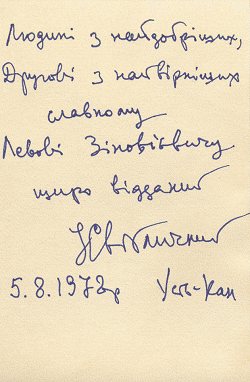 Людині з найдобріших,
Другові з найвірніших
славному
Левові Зіновієвичу
щиро відданий
ІСвітличний
5.8.1978р Усть-Кан